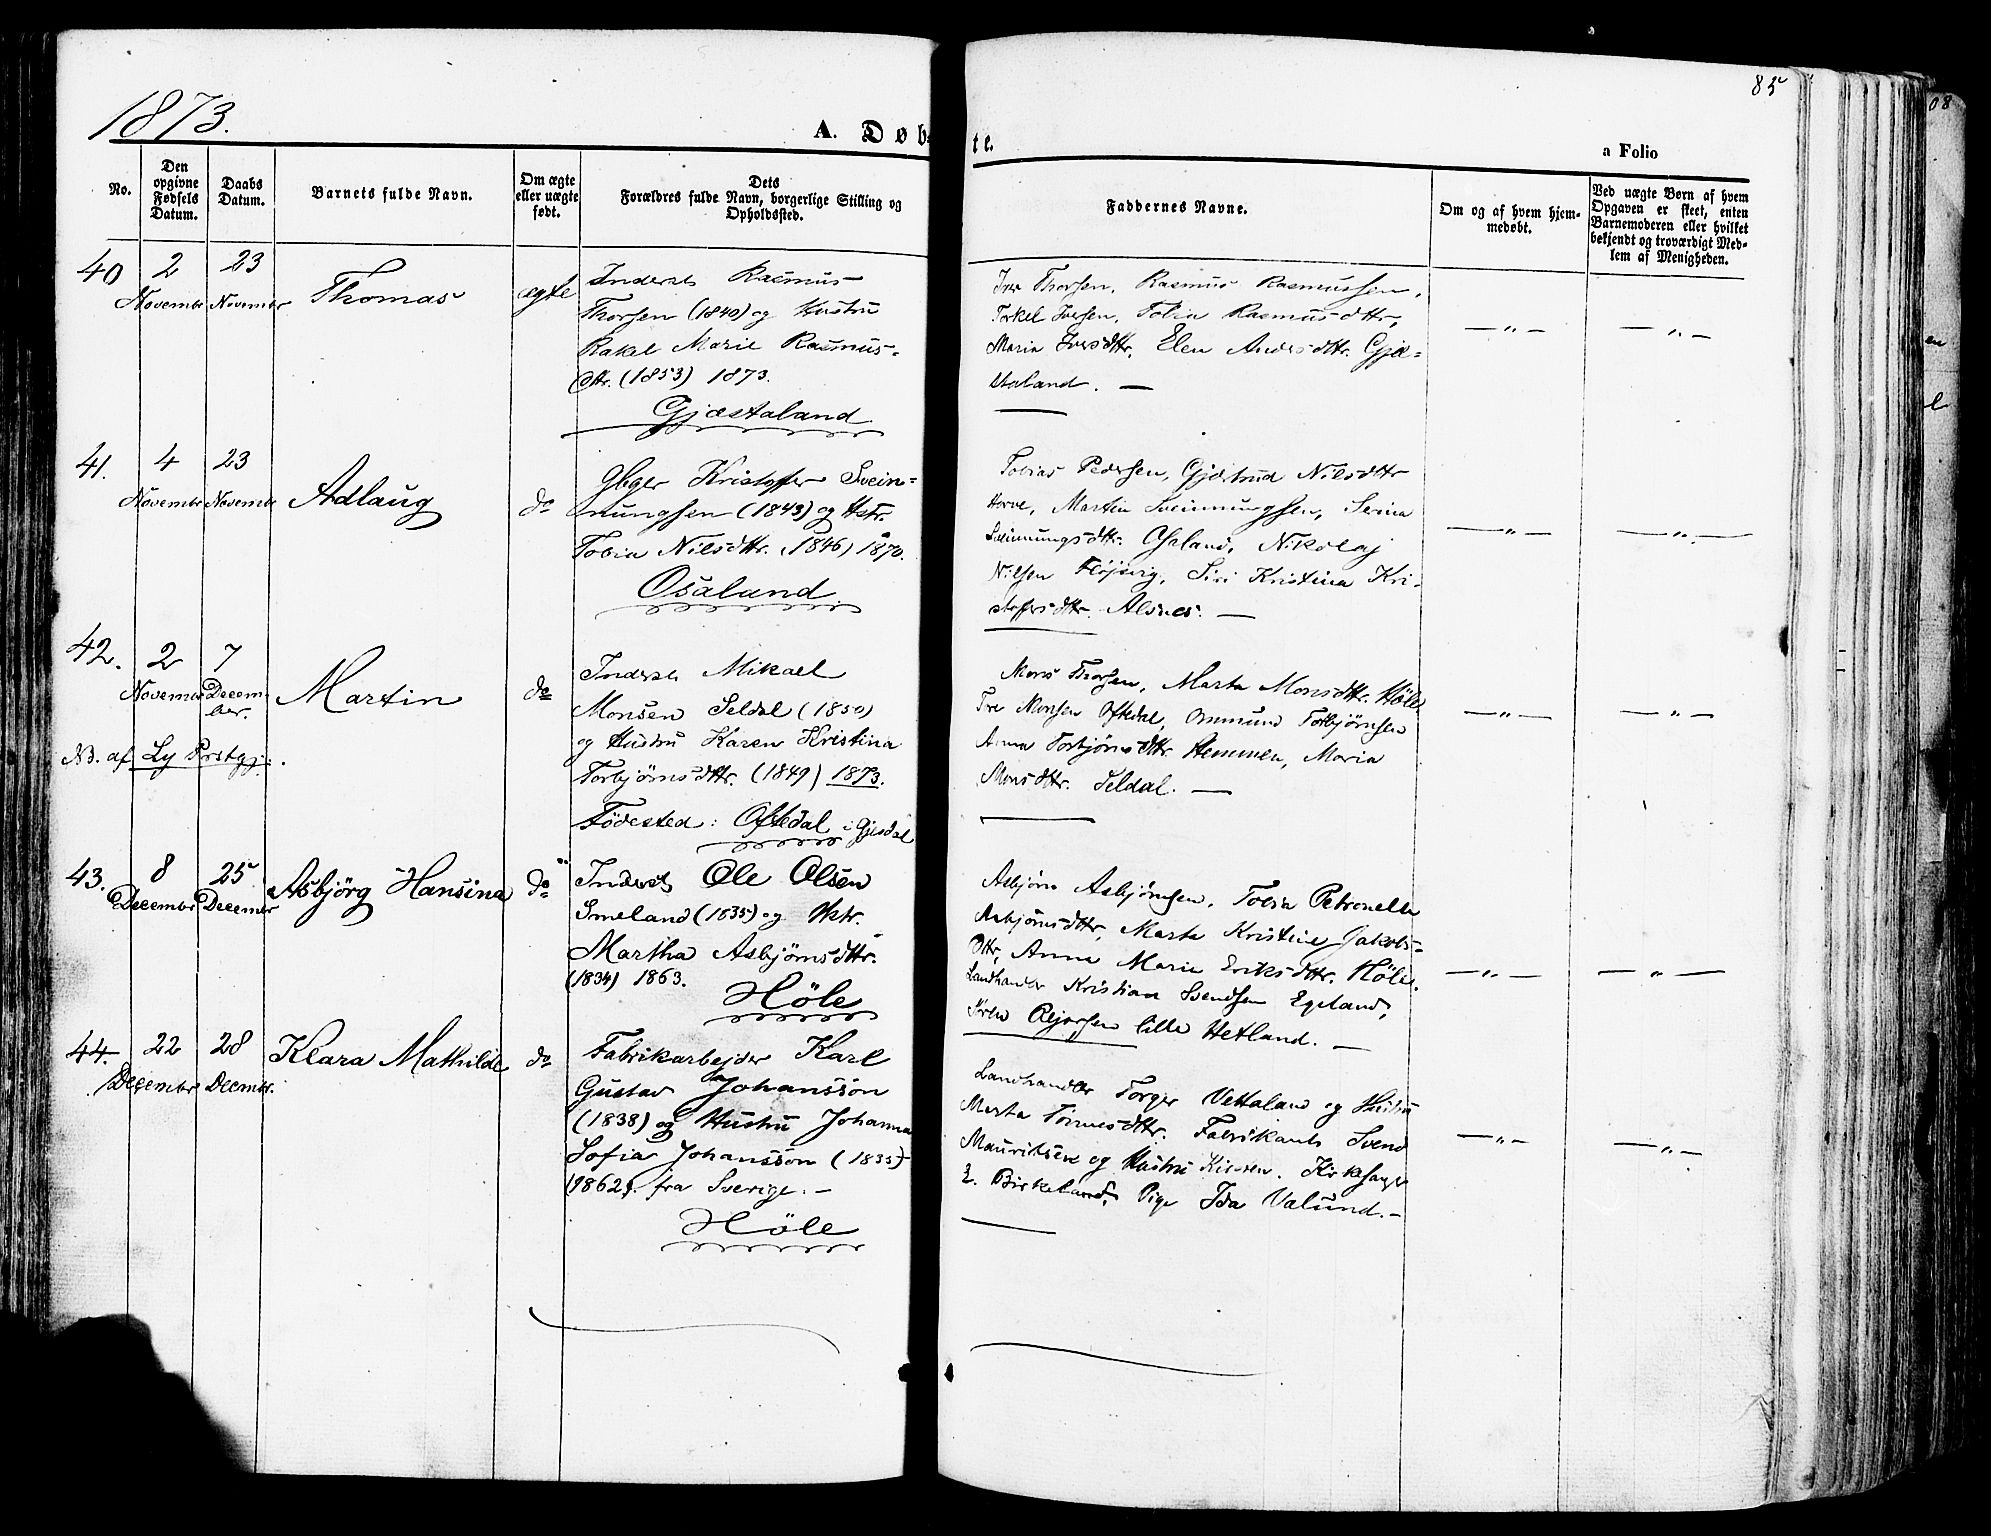 1873.
85
A. Døbte.
a Folio
No.
Den opgivne Fødsels Datum.
Daabs Datum.
Barnets fulde Navn.
Om ægte eller uægte født.
Dets Forældres fulde Navn, borgerlige Stilling og Opholdssted.
Faddernes Navne.
Om og af hvem hjemmedøbt.
Ved uægte Børn af hvem Opgaven er skeet, enten Barnemoderen eller hvilket bekjendt og troværdigt Medlem af Menigheden.
40
2 November
23 November
Thomas
ægte
Inderst Rasmus
Thorsen (1840) og Hustru
Rakel Marie Rasmus-
dttr. (1853) 1873.
Gjæstaland
Iver Thorsen, Rasmus Rasmussen,
Torkel Iversen, Tobia Rasmusdttr,
Maria Iversdttr. Elen Andersdttr. Gjæ-
staland. —
— „ —
— „ —
41.
4 November
23 November
Adlaug
do
Kristoffer Svein-
nungsen (1843) og Hstr.
Tobia Nilsdttr. (1846) 1870.
Osaland
Tobias Pedersen, Gjærtrud Nilsdttr
Horve, Martin Sveinnungsen, Serina
Sveinnungsdttr. Osaland, Nikolaj
Nilsen Fløjsvig, Siri Kristina Kri-
stoffersdttr. Alsnes. —
— „ —
— „ —
42.
2 November
7 December.
Martin
do
NB. af Ly Prstgj.
Inderst Mikael
Monsen Seldal (1850)
og Hustru Karen Kristina
Torbjörnsdttr. (1849) 1873.
Födested: Oftedal i Gjesdal
Mons Thorsen, Marta Monsdttr. Höle
Tre Monsen Oftedal, Ommund Torbjörnsen
Anna Torbjörnsdttr. Hemmen, Maria
Monsdttr. Seldal. —
— „ —
— „ —
43.
8 December
25 December
Asbjörg Hansina
do
Inderst Ole Olsen
Smeland (1835) og Hstr.
Martha Asbjörnsdttr.
(1834) 1863.
Höle
Asbjörn Asbjörnsen, Tobia Petronella
Asbjörnsdttr, Marta Kristine Jakobs-
dttr, Anna Marie Eriksdttr. Höle.
Landhandler Kristian Svendsen Egeland,
lille Hetland. —
— „ —
— „ —
44.
22 December
28 Decmbr.
Klara Mathilde
do
Fabrikarbejder Karl
Gustav Johansson
(1838) og Hustru Johanna
Sofia Johansson (1835)
1862. fra Sverige. —
Höle
Landhandler Torger Vetaland og Hustru
Marta Tönnesdttr. Fabrikant Svend
Mauritsen og Hustru Kirsten. Kirkesanger
Z. Birkeland, Pige Ida Valund. —
— „ —
— „ —